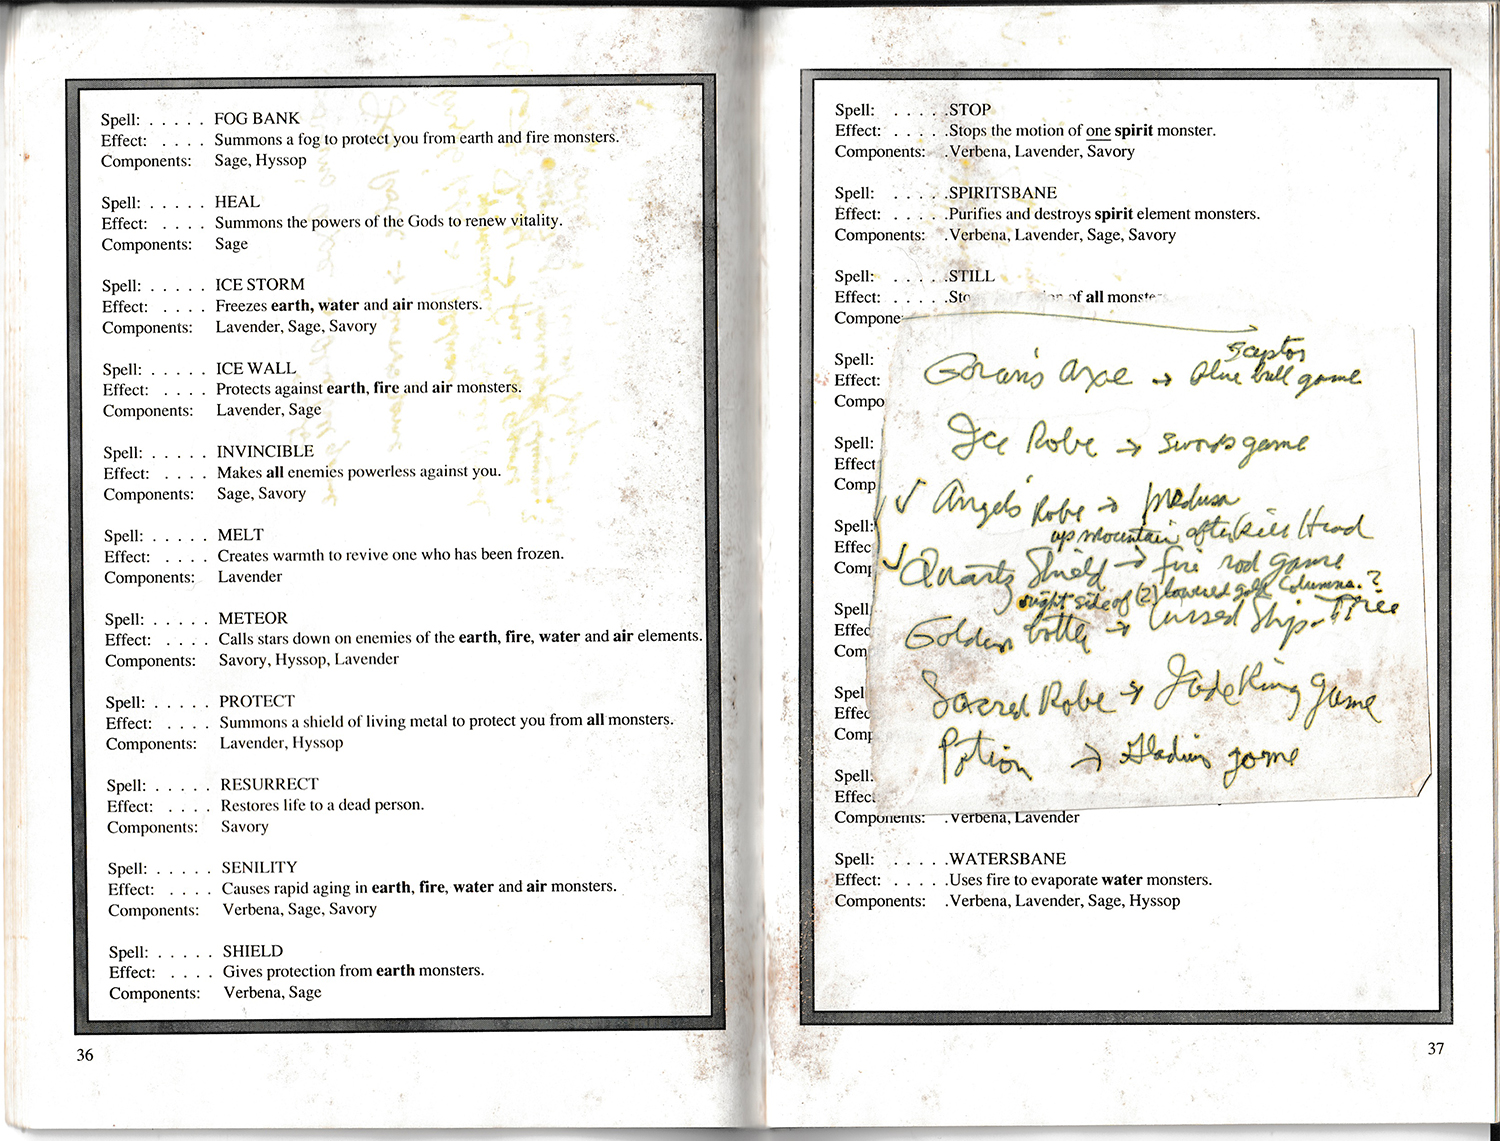 Spell: . . . . . FOG BANK
Effect: . . . . Summons a fog to protect you from earth and fire monsters.
Components: Sage, Hyssop
Spell: . . . . . HEAL
Effect: . . . . Summons the powers of the Gods to renew vitality.
Components: Sage
Spell: . . . . . ICE STORM
Effect: . . . . Freezes earth, water and air monsters.
Components: Lavender, Sage, Savory
Spell: . . . . . ICE WALL
Effect: . . . . Protects against earth, fire and air monsters.
Components: Lavender, Sage
Spell: . . . . . INVINCIBLE
Effect: . . . . Makes all enemies powerless against you.
Components: Sage, Savory
Spell: . . . . . MELT
Effect: . . . . Creates warmth to revive one who has been frozen.
Components: Lavender
Spell: . . . . . METEOR
Effect: . . . . Calls stars down on enemies of the earth, fire, water and air elements.
Components: Savory, Hyssop, Lavender
Spell: . . . . . PROTECT
Effect: . . . . Summons a shield of living metal to protect you from all monsters.
Components: Lavender, Hyssop
Spell: . . . . . RESURRECT
Effect: . . . . Restores life to a dead person.
Components: Savory
Spell: . . . . . SENILITY
Effect: . . . . Causes rapid aging in earth, fire, water and air monsters.
Components: Verbena, Sage, Savory
Spell: . . . . . SHIELD
Effect: . . . . Gives protection from earth monsters.
Components: Verbena, Sage
36
Spell: . . . . .STOP
Effect: . . . . .Stops the motion of one spirit monster.
Components: .Verbena, Lavender, Savory
Spell: . . . . .SPIRITSBANE
Effect: . . . . .Purifies and destroys spirit element monsters.
Components: .Verbena, Lavender, Sage, Savory
Spell: . . . . .STILL
Effect: . . . . .Sto of all monste
Compone
Spell:
Effect:
Compo
Spell:
Effect
Comp
Spell:
Effec
Comp
Spell
Effec
Com
Spel
Effec
Comp
Spell:
Effec
Components: .Verbena, Lavender
Spell: . . . . .WATERSBANE
Effect: . . . . .Uses fire to evaporate water monsters.
Components: .Verbena, Lavender, Sage, Hyssop
37
sceptor
Goran's axe → blue bull game
Ice Robe → swords game
✓ Angels' Robe → Medusa
up mountain after kill Head
✓ Quartz Shield → fire rod game
right side of (2) lowered gold columns.?
Golden bottle → Cursed Ship - Three
Sacred Robe → Jade King game
Potion → Gladius game